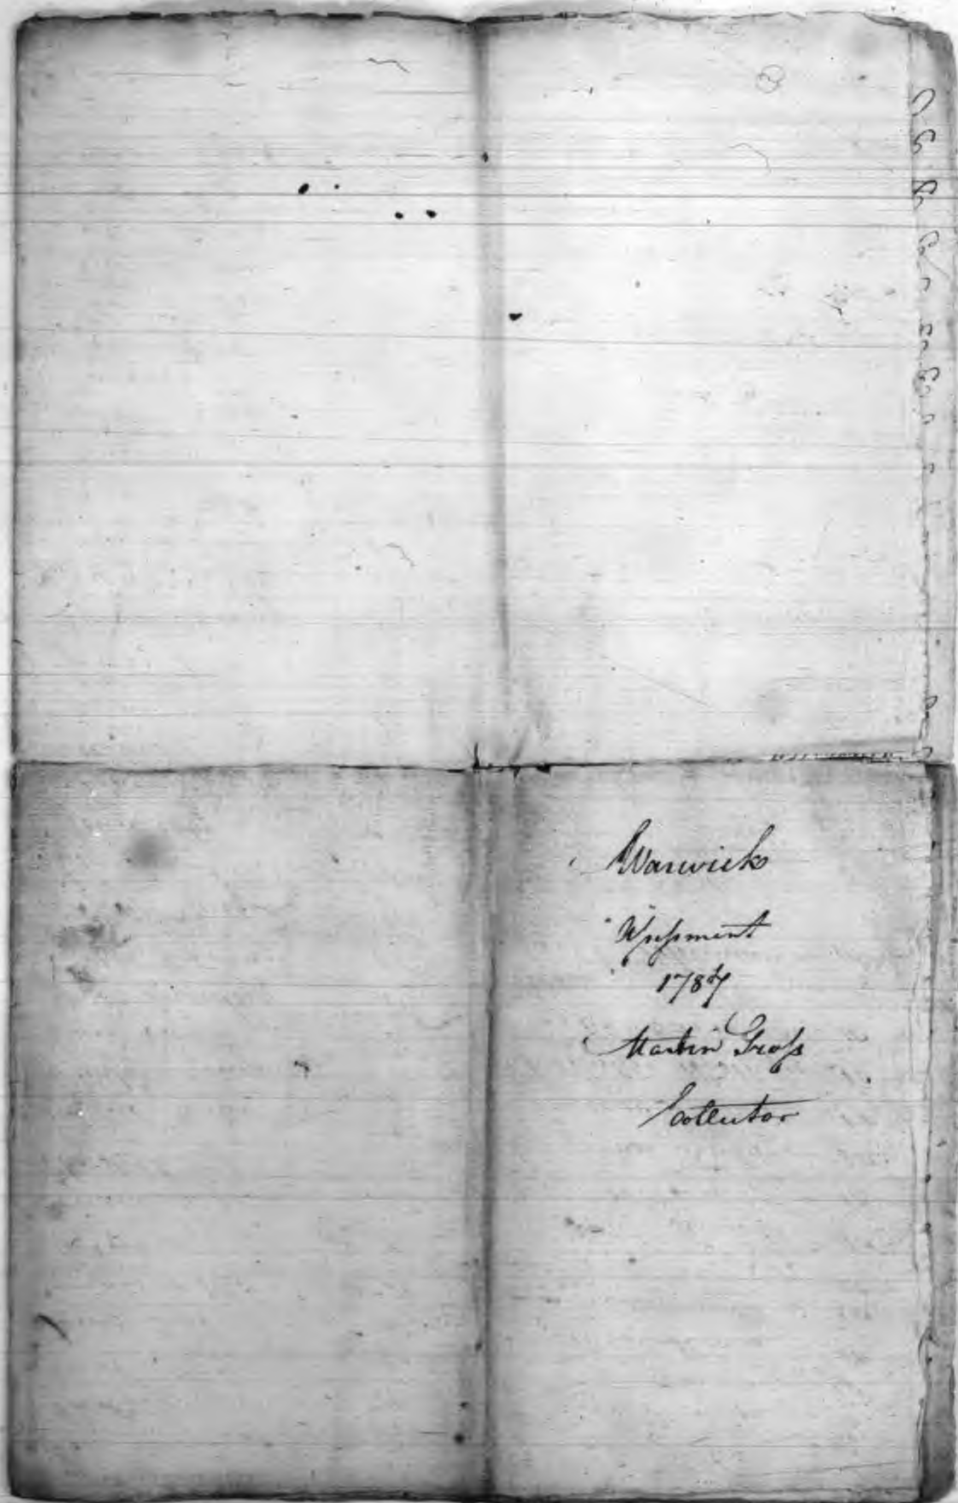 Warwick
Assessment
1787
Martin Grass
Collector